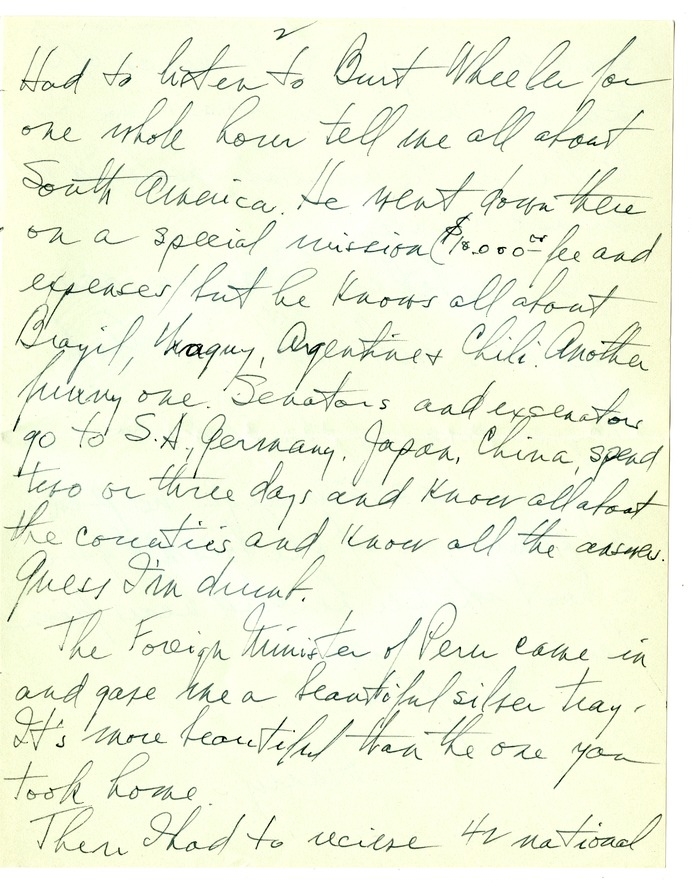 2
Had to listen to Burt Wheeler for
one whole hour tell me all about
South America. He went down there
on a special mission ($18,000 00 fee and
expenses) but he knows all about
Brazil, Uraguy, Argentine & Chili. Another
funny one. Senators and exsenators
go to S.A., Germany, Japan, China, spend
two or three days and know all about
the countries and know all the answers.
Guess I'm dumb.
The Foreign Minister of Peru came in
and gave me a beautiful silver tray.
It's more beautiful than the one you
took home.
Then I had to recieve 42 national